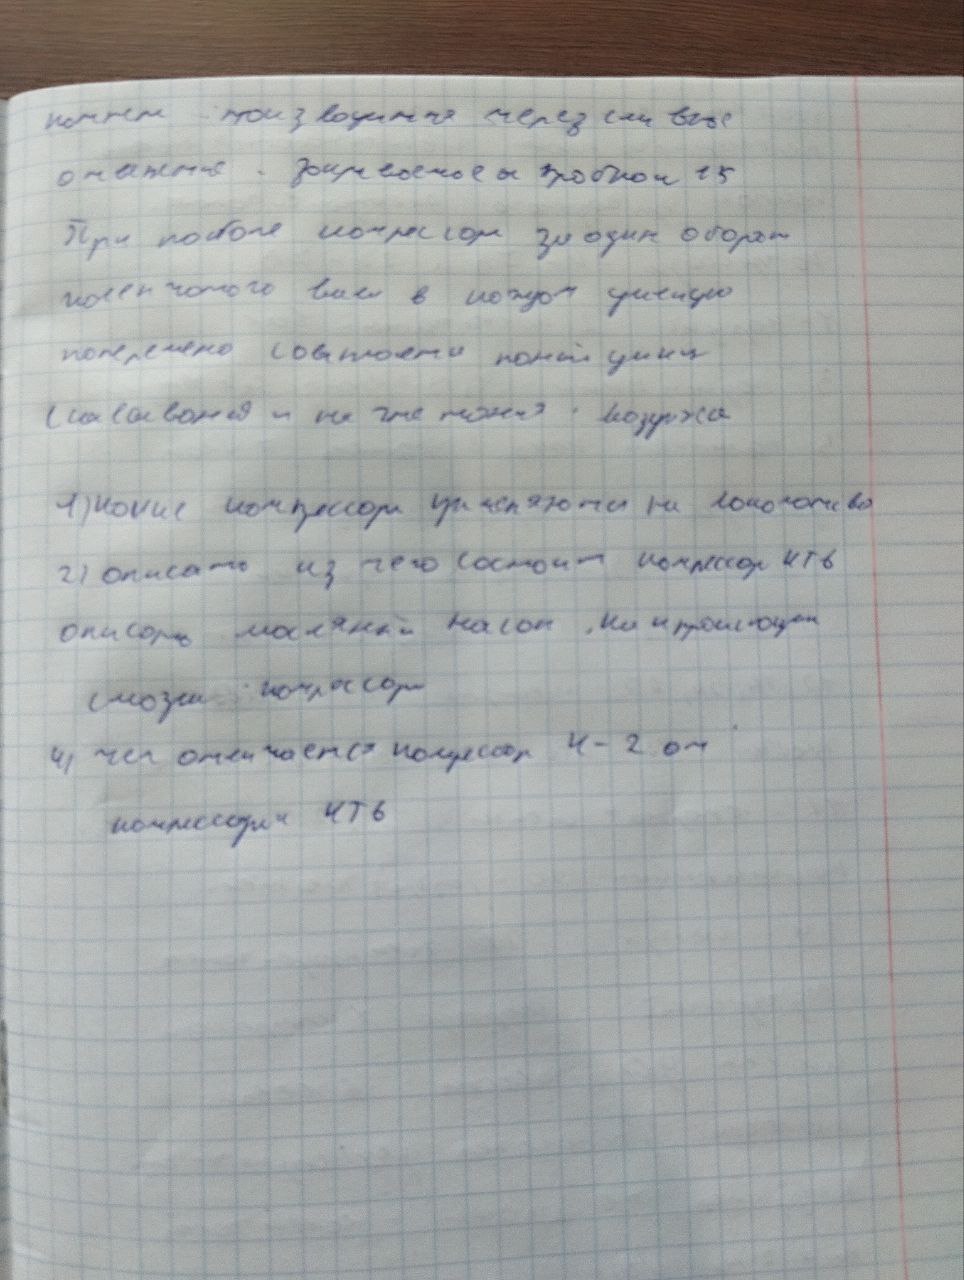 производится через сливные
отверстия. Закрываемые пробкой 25
При работе компрессора за один оборот
коленчатого вала в каждом цилиндре
попеременно совершается полный цикл
всасывания и нагнетания воздуха
1) какие компрессоры применяются на локомотиво
2) описать из чего состоит компрессор КТ6
описать масляный насос, как происходит
смазка компрессора
4) чем отличается компрессор К-2 от
компрессора КТ6